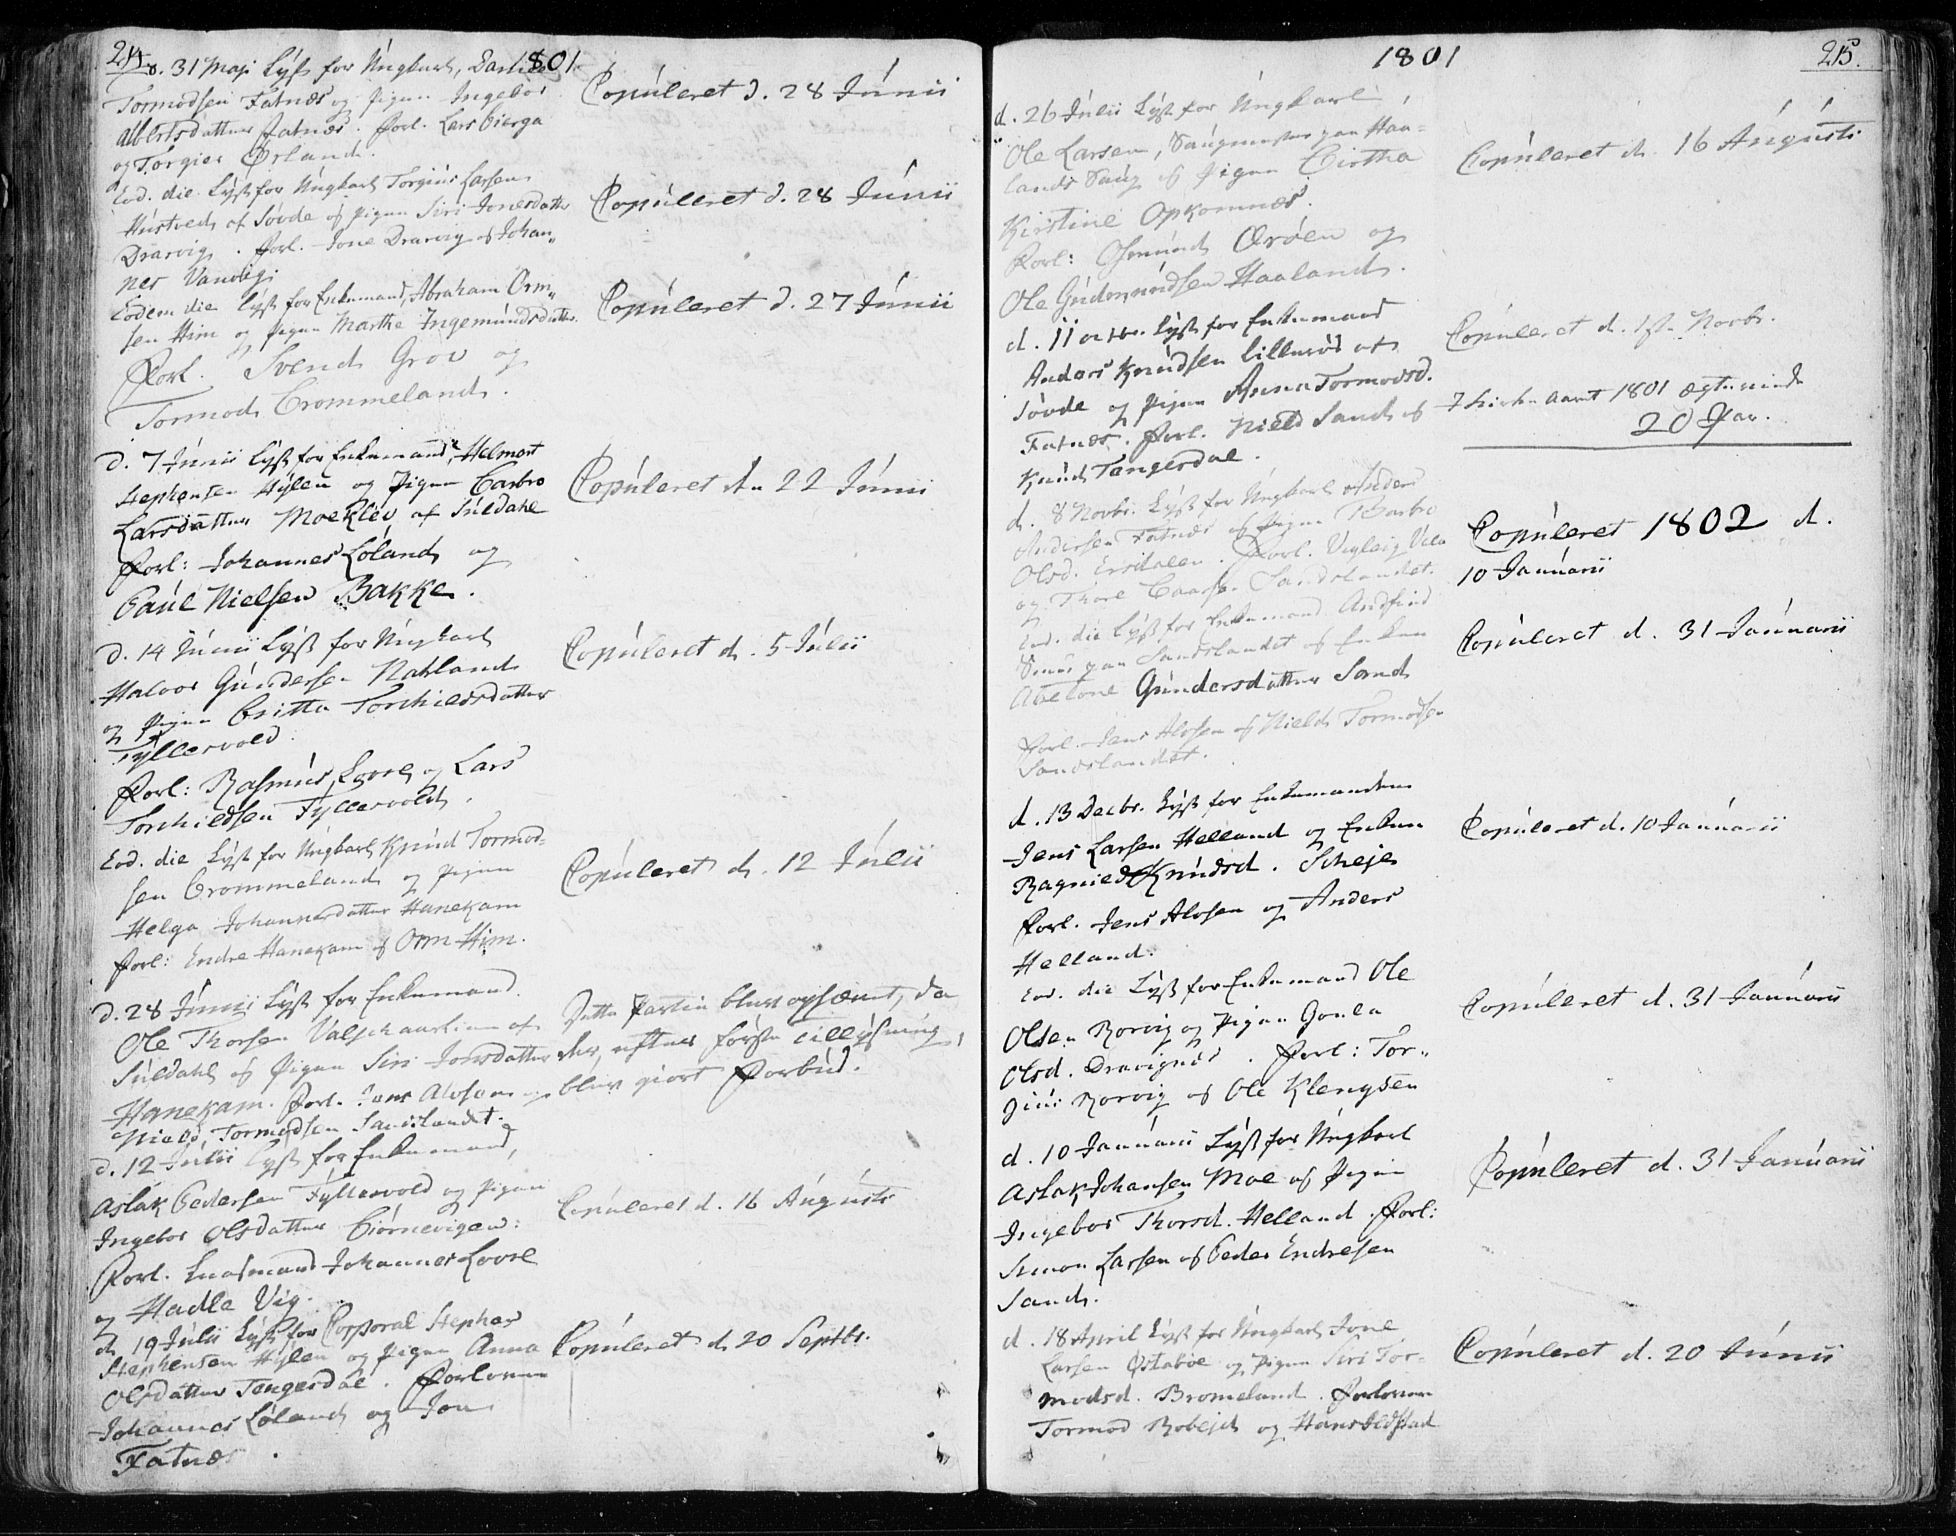 214
1801
d. 31 Maji Lyst for Ungkarl,
Tormodsen Fatnæs og Pigen Ingebor
Albertsdatter Fatnæs. Forl. Lars Bierga
og Torgier Ørland.
Copúleret d. 28 Júnii
Eod. die Lyst for Ungkarl Torgius Larsen
Hústvedt af Søvde og Pigen Siri Jonesdatter
Drarvig. Forl. Jone Drarvig og Johan„
nes Vandvig.
Copúleret d. 28 Júnii
Eodem die Lyst for Enkemand, Abraham Orm„
sen Him og Pigen Marthe Ingemúndsdatter
Forl. Svend Grov og
Tormod Brommeland.
Copúleret d. 27 Júnii
d. 7 Júnii Lyst for Enkemand, Helmert
Stephensen Hýlen og Pigen Barbro
Larsdatter Moeklev af Súldahl
Forl: Johannes Loland og
Paúl Nielsen Bakke.
Copúleret d. 22 Júnii
d. 14 Júnii Lyst for Ungkarl
Halvor Gúndersen Natland
og Pigen Britta Torchieldsdatter
Fyllesvold.
Forl: Rasmús Lovre og Lars
Torchieldsen Fyllesvold.
Copúleret d. 5 Júlii
Eod. die Lyst for Ungkarl Knúd Tormod=
sen Brommeland og Pigen
Helga Johannesdatter Hanekam
Forl: Endre Hanekam og Orm Him.
Copúleret d. 12 Júlii
d. 28 Júnii Lyst for Enkemand
Ole Thorsen af
Súldahl og Pigen Siri Jonsdatter
Hanekam. Forl. Jens Alvsen og
Niels Tormodsen Sandslandet.
Dette Partie blev opsæmt, da
der, efter første Tillysning,
blev giort Forbúd.
d. 12 Júlii Lyst for Enkemand,
Aslak Pedersen Fyllesvold og Pigen
Ingebor Olsdatter Biørnevigen:
Forl. Johannes Lovre
og Hadle Vig.
Copúleret d. 16 Aúgústi
d. 19 Júlii Lyst for Corporal Stephen
Stephensen Hylen og Pigen Anna
Olsdatter Tengesdal. Forlovere
Johannes Loland og Jon
Fatnæs.
Copúleret d. 20 Septbr.
1801
215.
d. 26 Júlii Lyst for Ungkarl,
Ole Larsen, Saugmester paa Haa=
lands Saug og Pigen Birtha
Kirstine Opkomnæs.
Forl: Osmúnd Ærøen og
Ole Gúdmúndsen Haaland.
Copúleret d. 16 Aúgústi
d. 11 Lyst for Enkemand
Anders Knúdsen af
Søvde og Pigen Anna Tormodsd.
Fatnæs. Forl. Nield Sand og
Knúd Tengesdal.
Copúleret d. 1ste Novbr.
I aaret 1801 ægteviede
20 Par.
d. 8 Novbr. Lyst for Ungkarl Anders
Andersen Fatnæs og Pigen Barbro
Olsd. Ersdalen. Forl.
og Thore Sandslandet.
Copúleret 1802 d.
10 Janúarii
Eod. die Lyst for Enkemand
paa Sandslandet og Enken
Abelone Gúndersdatter Sand
Forl. Jens Alvsen og Nields Tormodsen
Sandslandet.
Copúleret d. 31 Janúarii
d. 13 Decbr. Lyst for Enkemanden
Jens Larsen Helland og Enken
Ragnield Knúdsd. Scheje
Forl. Jens Alvsen og Anders
Helland.
Copúleret d. 10 Janúarii
Eod. die Lyst for Enkemand Ole
Olsen Rorvig og Pigen
Olsd. Dravignæs. Forl: Tor„
giús Rorvig og Ole Klengsen
Copúleret d. 31 Janúarii
d. 10 Janúarii Lyst for Ungkarl
Aslak Johansen Moe og Pigen
Ingebor Thorsd. Helland. Forl:
Simon Larsen og Peder Endresen
Sand.
Copúleret d. 31 Janúarii
d. 18 April Lyst for Ungkarl Jone
Larsen Østabøe og Pigen Siri Tor=
modsd. Bromeland. Forlovere
Tormod Robejd og Hans
Copúleret d. 20 Júnii